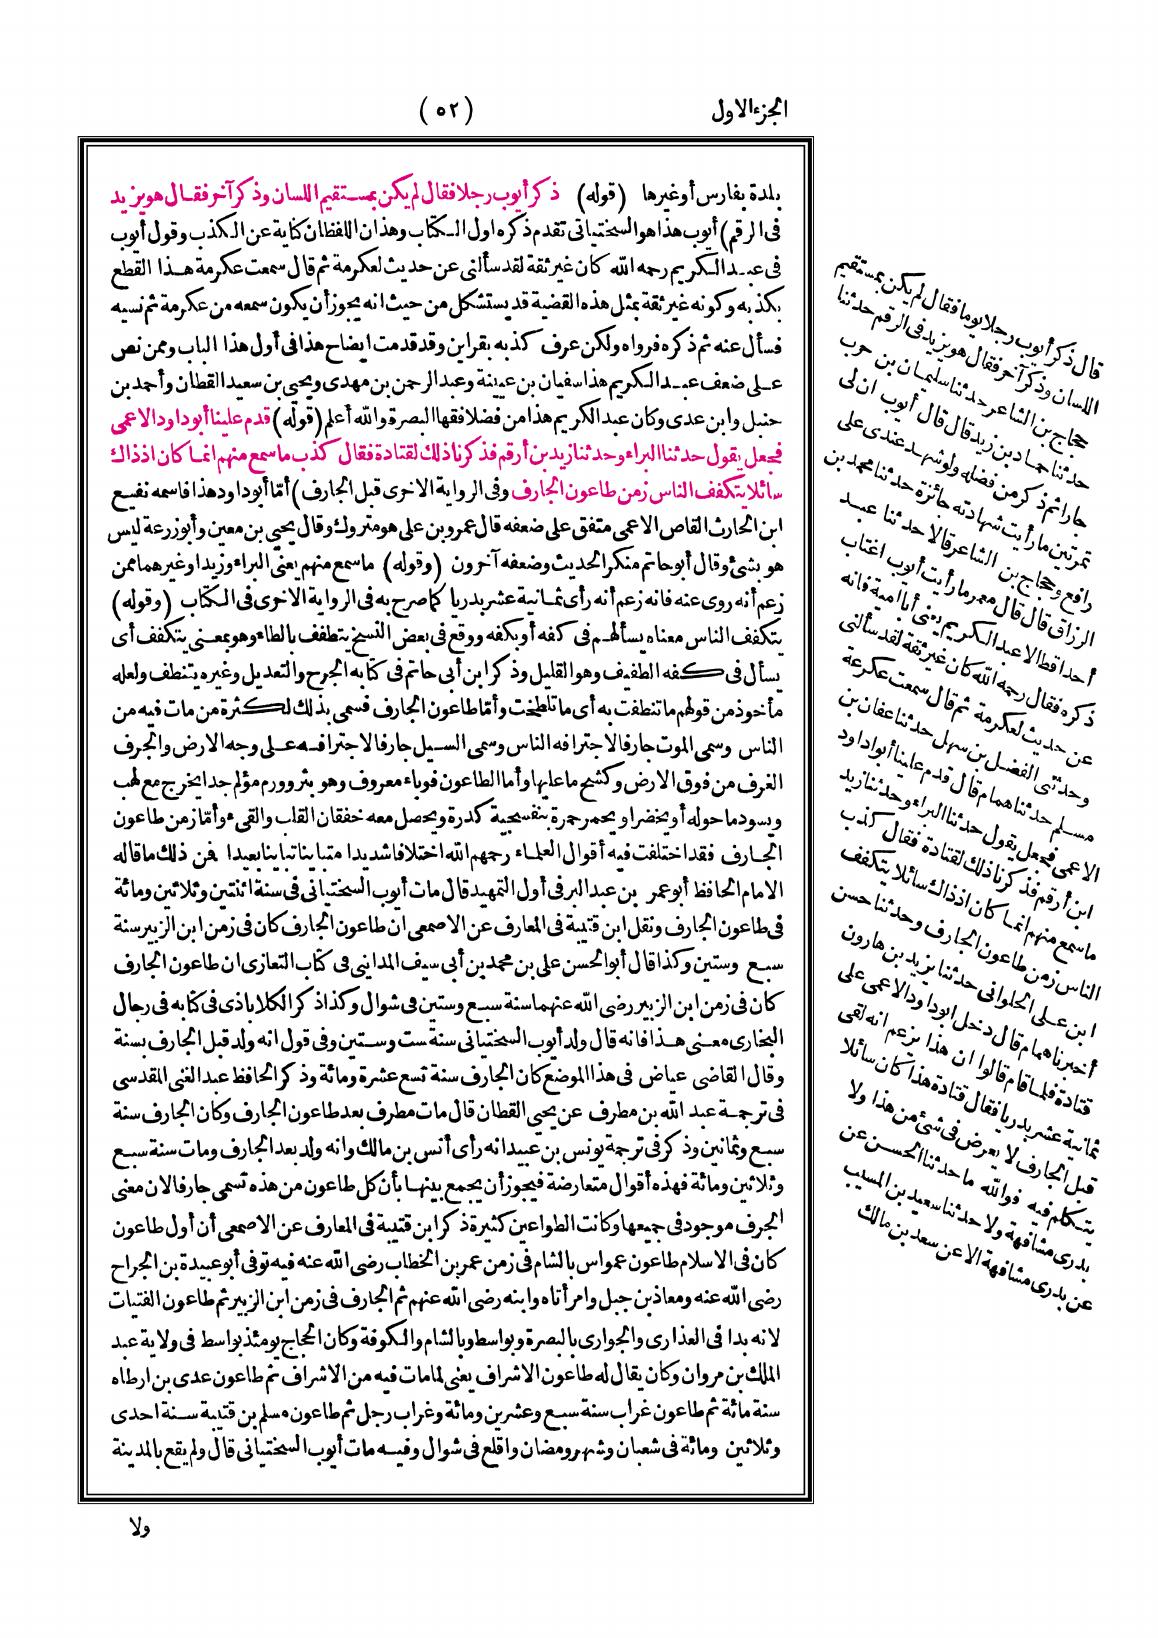 الجزء الاول
(٥٢)
بلدة بفارس أو غيرها (قوله) ذكر أيوب رجلا فقال لم يكن بمستقيم اللسان وذكر آخر فقال هو يزيد
فى الرقم) أيوب هذا هو السختيانى تقدم ذكره اول الكتاب وهذان اللفظان كناية عن الكذب وقول أيوب
فى عبد الكريم رحمه الله كان غير ثقة لقد سألنى عن حديث لعكرمة ثم قال سمعت عكرمة هذا القطع
بكذبه وكونه غير ثقة بمثل هذه القضية قد يستشكل من حيث انه يجوز أن يكون سمعه من عكرمة ثم نسيه
فسأل عنه ثم ذكره فرواه ولكن عرف كذبه بقراين وقد قدمت ايضاح هذا فى أول هذا الباب وممن نص
على ضعف عبد الكريم هذا سفيان بن عيينة وعبد الرحمن بن مهدى ويحيى بن سعيد القطان وأحمد بن
حنبل وابن عدى وكان عبد الكريم هذا من فضلا فقها البصرة والله أعلم (قوله) قدم علينا أبو داود الاعمى
فجعل يقول حدثنا البراء وحدثنا زيد بن أرقم فذكرنا ذلك لقتادة فقال كذب ما سمع منهم انما كان اذ ذاك
سائلا يتكفف الناس زمن طاعون الجارف وفى الرواية الاخرى قبل الجارف) أما أبو داود هذا فاسمه نفيع
ابن الحارث القاص الاعمى متفق على ضعفه قال عمرو بن على هو متروك وقال يحيى بن معين وأبو زرعة ليس
هو بشئ وقال أبو حاتم منكر الحديث وضعفه آخرون (وقوله) ما سمع منهم يعنى البراء وزيدا وغيرهما ممن
زعم أنه روى عنه فانه زعم أنه رأى ثمانية عشر بدريا كما صرح به فى الرواية الاخرى فى الكتاب (وقوله)
يتكفف الناس معناه يسألهم فى كفه أو بكفه ووقع فى بعض النسخ يتطفف بالطاء وهو بمعنى يتكفف أى
يسأل فى كفه الطفيف وهو القليل وذكر ابن أبى حاتم فى كتابه الجرح والتعديل وغيره يتنطف ولعله
مأخوذ من قولهم ما تنطفت به أى ما تلطخت وأما طاعون الجارف فسمى بذلك لكثرة من مات فيه من
الناس وسمى الموت جارفا لاجترافه الناس وسمى السيل جارفا لاجترافه على وجه الارض والجرف
الغرف من فوق الارض وكشح ما عليها وأما الطاعون فوباء معروف وهو بثر وورم مؤلم جدا يخرج مع لهب
ويسود ما حوله أو يخضر او يحمر حمرة بنفسجية كدرة ويحصل معه خفقان القلب والقىء وأما زمن طاعون
الجارف فقد اختلفت فيه أقوال العلماء رحمهم الله اختلافا شديدا متباينا تباينا بعيدا فمن ذلك ما قاله
الامام الحافظ أبو عمر بن عبد البر فى أول التمهيد قال مات أيوب السختيانى فى سنة اثنتين وثلاثين ومائة
فى طاعون الجارف ونقل ابن قتيبة فى المعارف عن الاصمعى ان طاعون الجارف كان فى زمن ابن الزبير سنة
سبع وستين وكذا قال أبو الحسن على بن محمد بن أبى سيف المداينى فى كتاب التعازى ان طاعون الجارف
كان فى زمن ابن الزبير رضى الله عنهما سنة سبع وستين فى شوال وكذا ذكر الكلاباذى فى كتابه فى رجال
البخارى معنى هذا فانه قال ولد أيوب السختيانى سنة ست وستين وفى قول انه ولد قبل الجارف بسنة
وقال القاضى عياض فى هذا الموضع كان الجارف سنة تسع عشرة ومائة وذكر الحافظ عبد الغنى المقدسى
فى ترجمة عبد الله بن مطرف عن يحيى القطان قال مات مطرف بعد طاعون الجارف وكان الجارف سنة
سبع وثمانين وذكر فى ترجمة يونس بن عبيد انه رأى أنس بن مالك وانه ولد بعد الجارف ومات سنة سبع
وثلاثين ومائة فهذه أقوال متعارضة فيجوز أن يجمع بينها بأن كل طاعون من هذه تسمى جارفا لان معنى
الجرف موجود فى جميعها وكانت الطواعين كثيرة ذكر ابن قتيبة فى المعارف عن الاصمعى أن أول طاعون
كان فى الاسلام طاعون عمواس بالشام فى زمن عمر بن الخطاب رضى الله عنه فيه توفى أبو عبيدة بن الجراح
رضى الله عنه ومعاذ بن جبل وامرأتاه وابنه رضى الله عنهم ثم الجارف فى زمن ابن الزبير ثم طاعون الفتيات
لانه بدا فى العذارى والجوارى بالبصرة وبواسط وبالشام والكوفة وكان الحجاج يومئذ بواسط فى ولاية عبد
الملك بن مروان وكان يقال له طاعون الاشراف يعنى لما مات فيه من الاشراف ثم طاعون عدى بن ارطاه
سنة مائة ثم طاعون غراب سنة سبع وعشرين ومائة وغراب رجل ثم طاعون مسلم بن قتيبة سنة احدى
وثلاثين ومائة فى شعبان وشهر رمضان واقلع فى شوال وفيه مات أيوب السختيانى قال ولم يقع بالمدينة
ولا
قال ذكر أيوب رجلا يوما فقال لم يكن بمستقيم
اللسان وذكر آخر فقال هو يزيد فى الرقم حدثنا
حجاج بن الشاعر حدثنا سليمان بن حرب
حدثنا حماد بن زيد قال قال أيوب ان لى
جارا ثم ذكر من فضله ولو شهد عندى على
تمرتين ما رأيت شهادته جائزة حدثنا محمد بن
رافع وحجاج بن الشاعر قالا حدثنا عبد
الرزاق قال قال معمر ما رأيت أيوب اغتاب
أحدا قط الا عبد الكريم يعنى أبا أمية فانه
ذكره فقال رحمه الله كان غير ثقة لقد سألنى
عن حديث لعكرمة ثم قال سمعت عكرمة
وحدثنى الفضل بن سهل حدثنا عفان بن
مسلم حدثنا همام قال قدم علينا أبو داود
الاعمى فجعل يقول حدثنا البراء وحدثنا زيد
ابن أرقم فذكرنا ذلك لقتادة فقال كذب
ما سمع منهم انما كان اذ ذاك سائلا يتكفف
الناس زمن طاعون الجارف وحدثنا حسن
ابن على الحلوانى حدثنا يزيد بن هارون
أخبرنا همام قال دخل ابو داود الاعمى على
قتادة فلما قام قالوا ان هذا يزعم انه لقى
ثمانية عشر بدريا فقال قتادة هذا كان سائلا
قبل الجارف لا يعرض فى شئ من هذا ولا
يتكلم فيه فوالله ما حدثنا الحسن عن
بدرى مشافهة ولا حدثنا سعيد بن المسيب
عن بدرى مشافهة الا عن سعد بن مالك